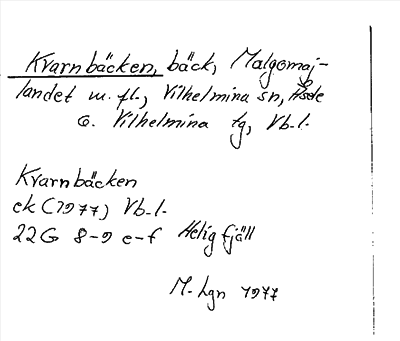 Kvarnbäcken, bäck, Malgomaj-
landet m. fl., Vilhelmina sn, Åsele
o. Vilhelmina tg, Vb.l.
Kvarnbäcken
ek (1977) Vb.l.
22G 8-9 e-f Helig fjäll
M. Lgn 1977